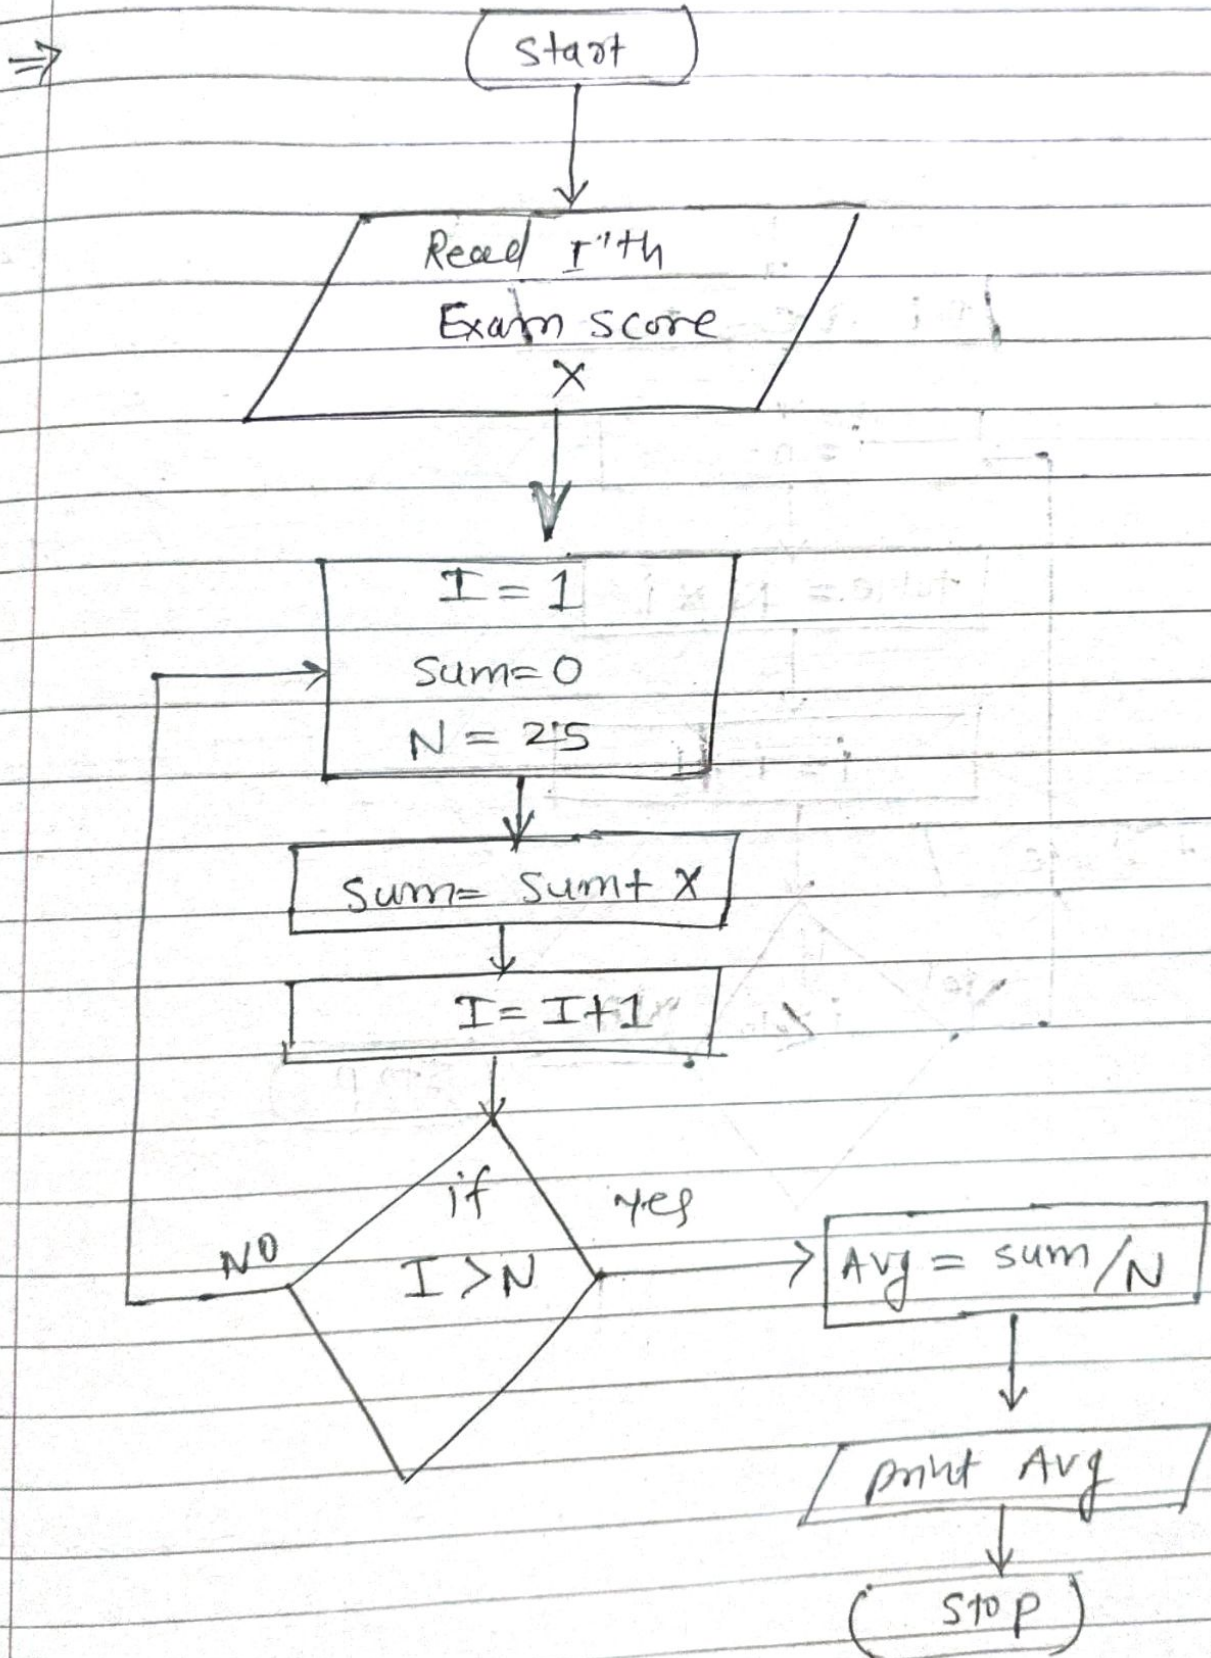 ⇒
Start
Read I"th
Exam score
X
I = 1
Sum = 0
N = 25
Sum = Sum + X
I = I+1
if
I > N
NO
Yes
Avg = sum/N
print Avg
Stop